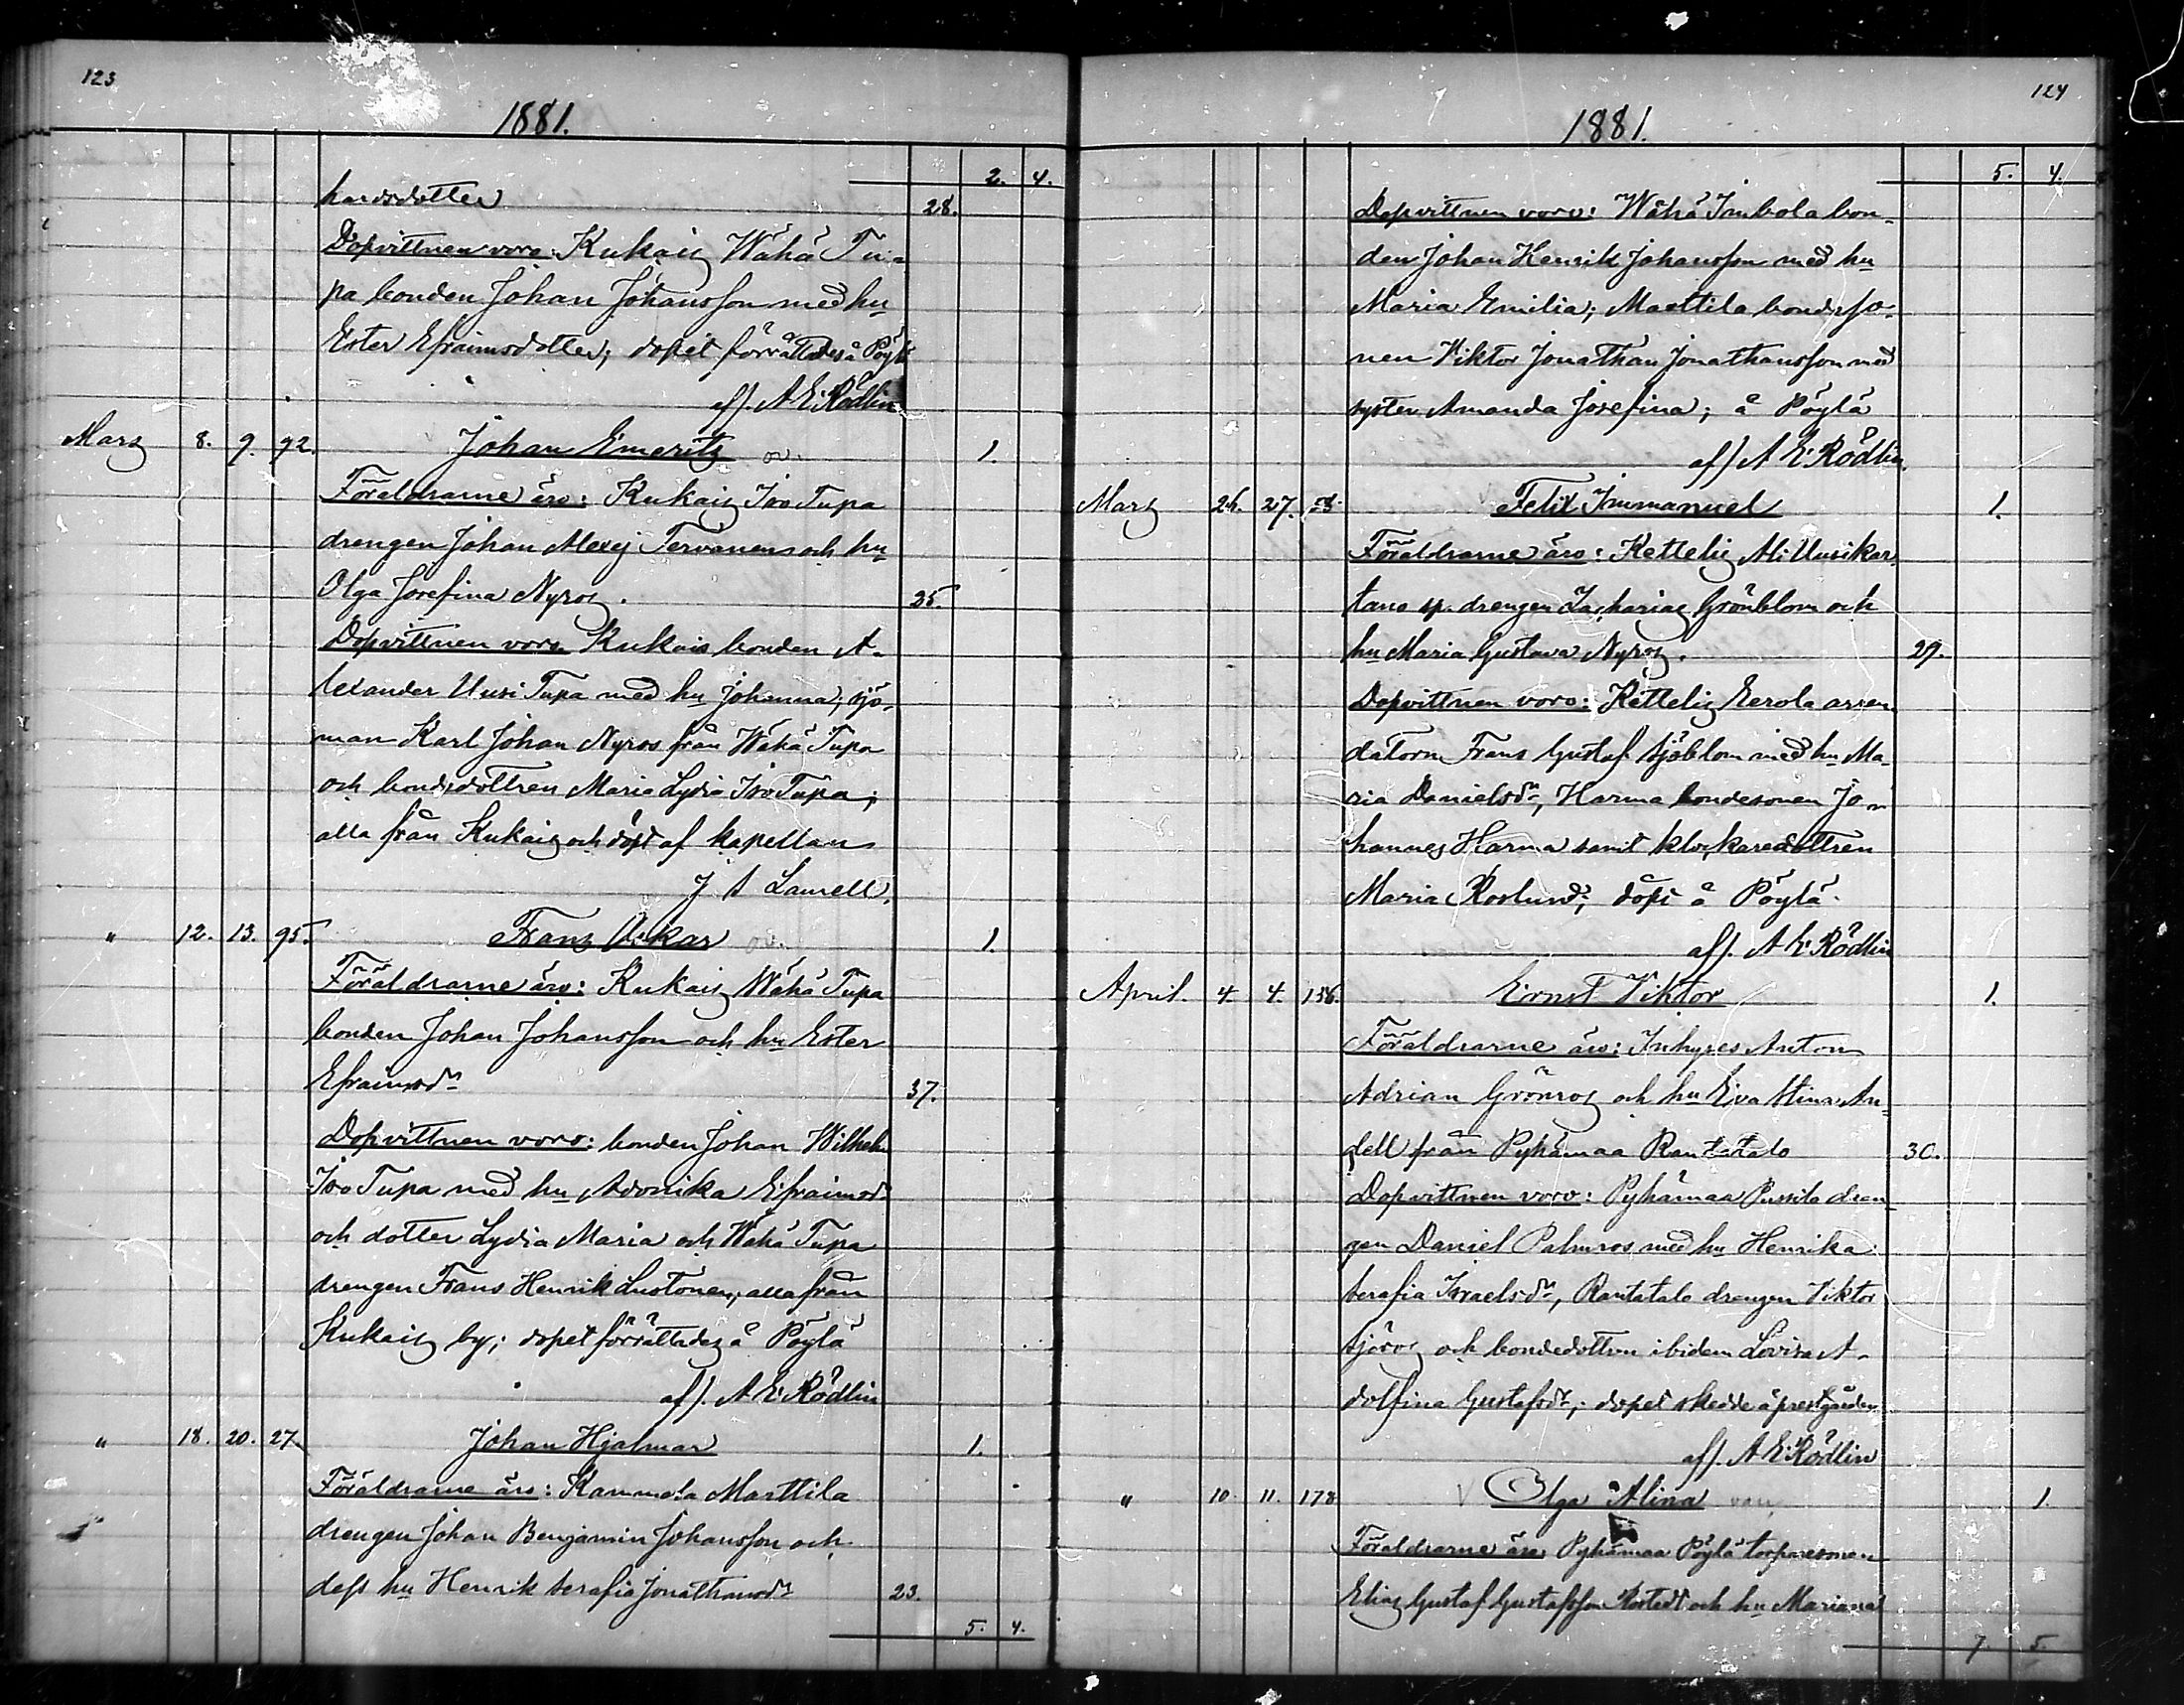 123
1881.
2. 4.
hardsdotter 28.
Dopvittnen voro: Kukais Wähä Tu-
pa bonden Johan Johansson med hu
Ester Efraimsdotter; dopet förrättades å Pöylä
af). A E: Rödlin
Mars 8. 9. 92. Johan Emeritz ov. 1.
Föräldrarne äro: Kukais Iso Tupa
drengen Johan Alexej Tervanen och hu
Olga Josefina Nyros. 25.
Dopvittnen voro Kukais bonden A-
lexander Uusi Tupa med hu Johanna, sjö-
man Karl Johan Nyros från Wähä Tupa
och bondedottren Maria Lydia Iso Tupa;
alla från Kukais och döpt af kapellan
J A Laurell.
" 12. 13. 95. Frans Oskar ov. 1.
Föräldrarne äro: Kukais Wähä Tupa
bonden Johan Johansson och hu Ester
Efraimsdr 37.
Dopvittnen voro: bonden Johan Wilhelm
Iso Tupa med hu Adonika Efraimsdr
och dotter Lydia Maria och Wähä Tupa
drengen Frans Henrik Lustonen, alla från
Kukais by; dopet förrättades å Pöylä
af). A E: Rödlin
" 18. 20. 27. Johan Hjalmar 1.
Föräldrarne äro: Kammela Marttila
drengen Johan Benjamin Johansson och
dess hu Henrik Serafia Jonathansdr 23.
5. 4.
124
1881.
5. 4.
Dopvittnen voro: Wähä Imbola bon-
den Johan Henrik Johansson med hu
Maria Emilia; Marttila bondeso-
nen Viktor Jonathan Jonathansson med
syster Amanda Josefina; å Pöylä
af) A E: Rödlin.
Mars 26. 27. Felix Immanuel 1.
Föräldrarne äro: Kettelig Ali Uusikar-
tano sp. drengen Zacharias Grönblom och
hu Maria Gustava Nyros. 29.
Dopvittnen voro: Kettelig Eerola arren-
datorn Frans Gustaf Sjöblom med hu Ma-
ria Danielsdr, Harma bondesonen Jo-
hannes Harma samt klockaredottren
Maria Roslund; döpt å Pöylä.
af). A E: Rödlin
April. 4. 4. 156. Ernst Viktor 1.
Föräldrarne äro: Inhyses Anton
Adrian Grönros och hu Eva Stina An-
dell från Pyhämaa Rantatalo 30.
Dopvittnen voro: Pyhämaa Pussila dren-
gen Daniel Palmros med hu Henrika
Serafia Israelsdr, Rantatalo drengen Viktor
Sjöros och bondedottren ibidem Lovisa A-
dolfina Gustafsdr; dopet skedde å prestgården
af). A E: Rödlin
" 10. 11. 178 V Olga Alina 1.
Föräldrarne äro Pyhämaa Pöylä torparesonen
Elias Gustaf Gustafsson Rostedt och hu Mariana
7. 5.